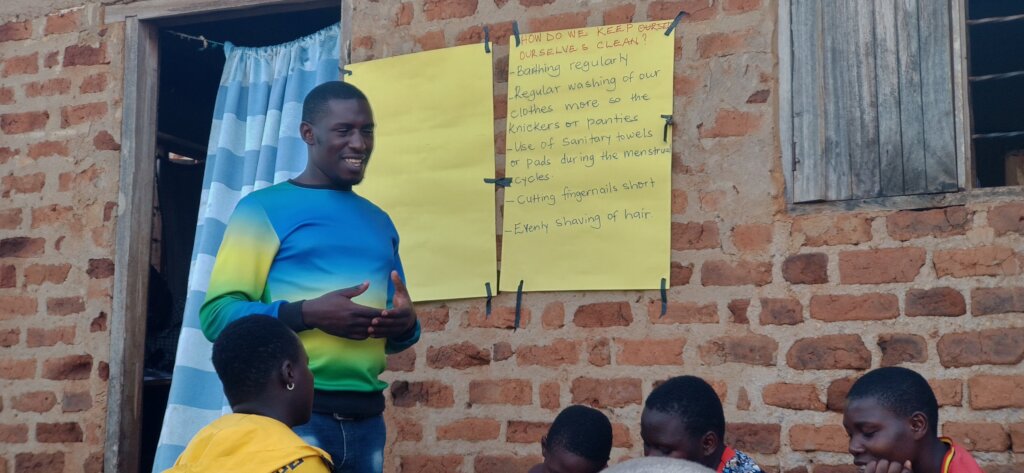 HOW DO WE KEEP OURSEL
OURSELVES CLEAN?
- Bathing regularly
- Regular washing of our
clothes more so the
knickers or panties
- Use of Sanitary towels
or pads during the menstrual
cycles.
- Cutting fingernails short
- Evenly shaving of hair